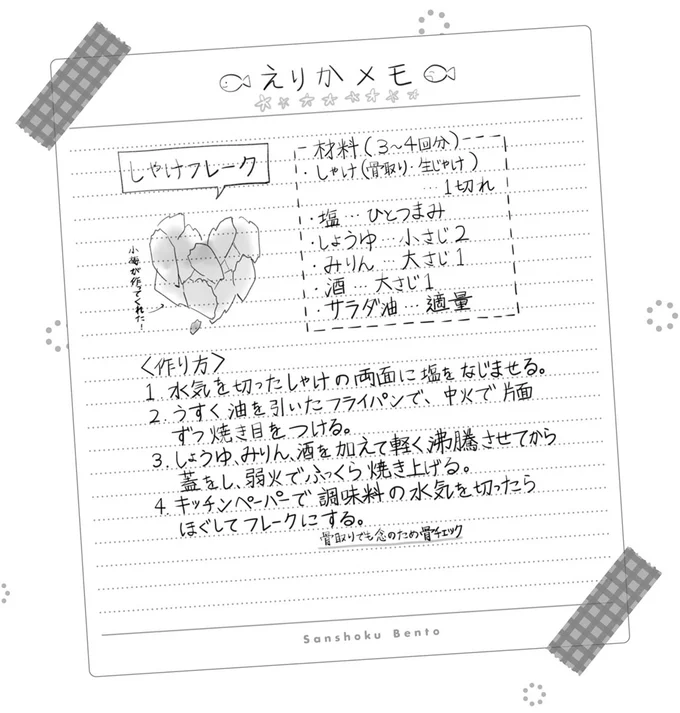 えりかメモ
しゃけフレーク
小梅が作ってくれた!
材料(3〜4回分)
・しゃけ(骨取り・生じゃけ)
…1切れ
・塩…ひとつまみ
・しょうゆ…小さじ2
・みりん…大さじ1
・酒…大さじ1
・サラダ油…適量
<作り方>
1. 水気を切ったしゃけの両面に塩をなじませる。
2. うすく油を引いたフライパンで、中火で片面
ずつ焼き目をつける。
3. しょうゆ、みりん、酒を加えて軽く沸騰させてから
蓋をし、弱火でふっくら焼き上げる。
4. キッチンペーパーで調味料の水気を切ったら
ほぐしてフレークにする。
骨取りでも念のため骨チェック
Sanshoku Bento